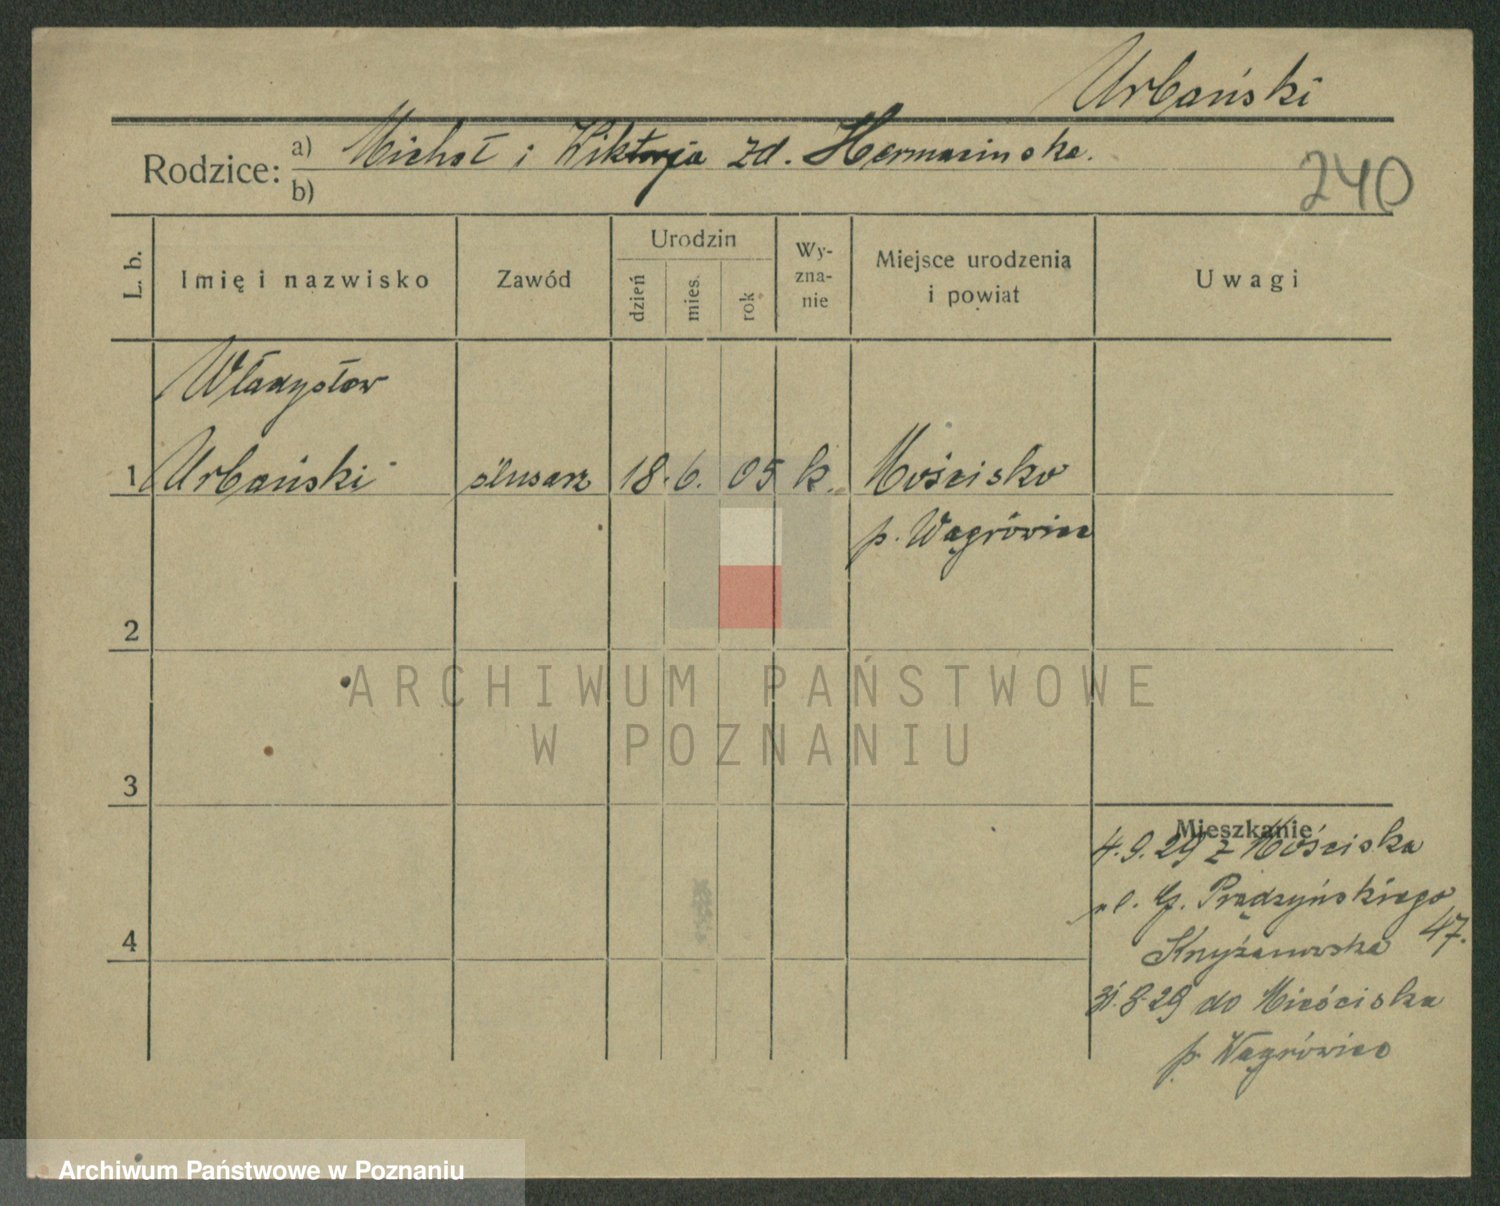 Urbański
Rodzice: a) Michał i Wiktorja zd. Hermacinska.
b)
240
L. b.
Imię i nazwisko
Zawód
Urodzin
dzień
mies.
rok
Wy-
zna-
nie
Miejsce urodzenia
i powiat
Uwagi
Władysław
1 Urbański ślusarz 18. 6. 05 k. Mościsko
p. Wągrówiec
2
ARCHIWUM PAŃSTWOWE
W POZNANIU
3
Mieszkanie
4.9.29 z Mościska
ul. G. Prądzyńskiego
47.
4
31.8.29 do Mieściska
p. Wągrówiec
Archiwum Państwowe w Poznaniu